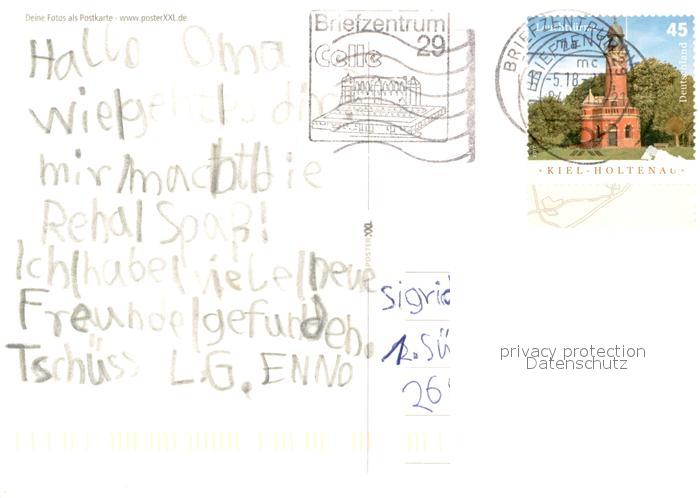 Deine Fotos als Postkarte - www.posterXXL.de
Hallo Oma
wie|geht|es dir
mir|macht|die
Reha| Spaß!
Ich|habe|viele|neue
Freunde|gefunden.
Tschüss L.G. ENNO
POSTERXXL
Briefzentrum
29
Celle
BRIEFZENTRUM
29
mc
-5.18-
45
Deutschland
· KIEL-HOLTENAU ·
Sigrid
R.SÜ
26
privacy protection
Datenschutz